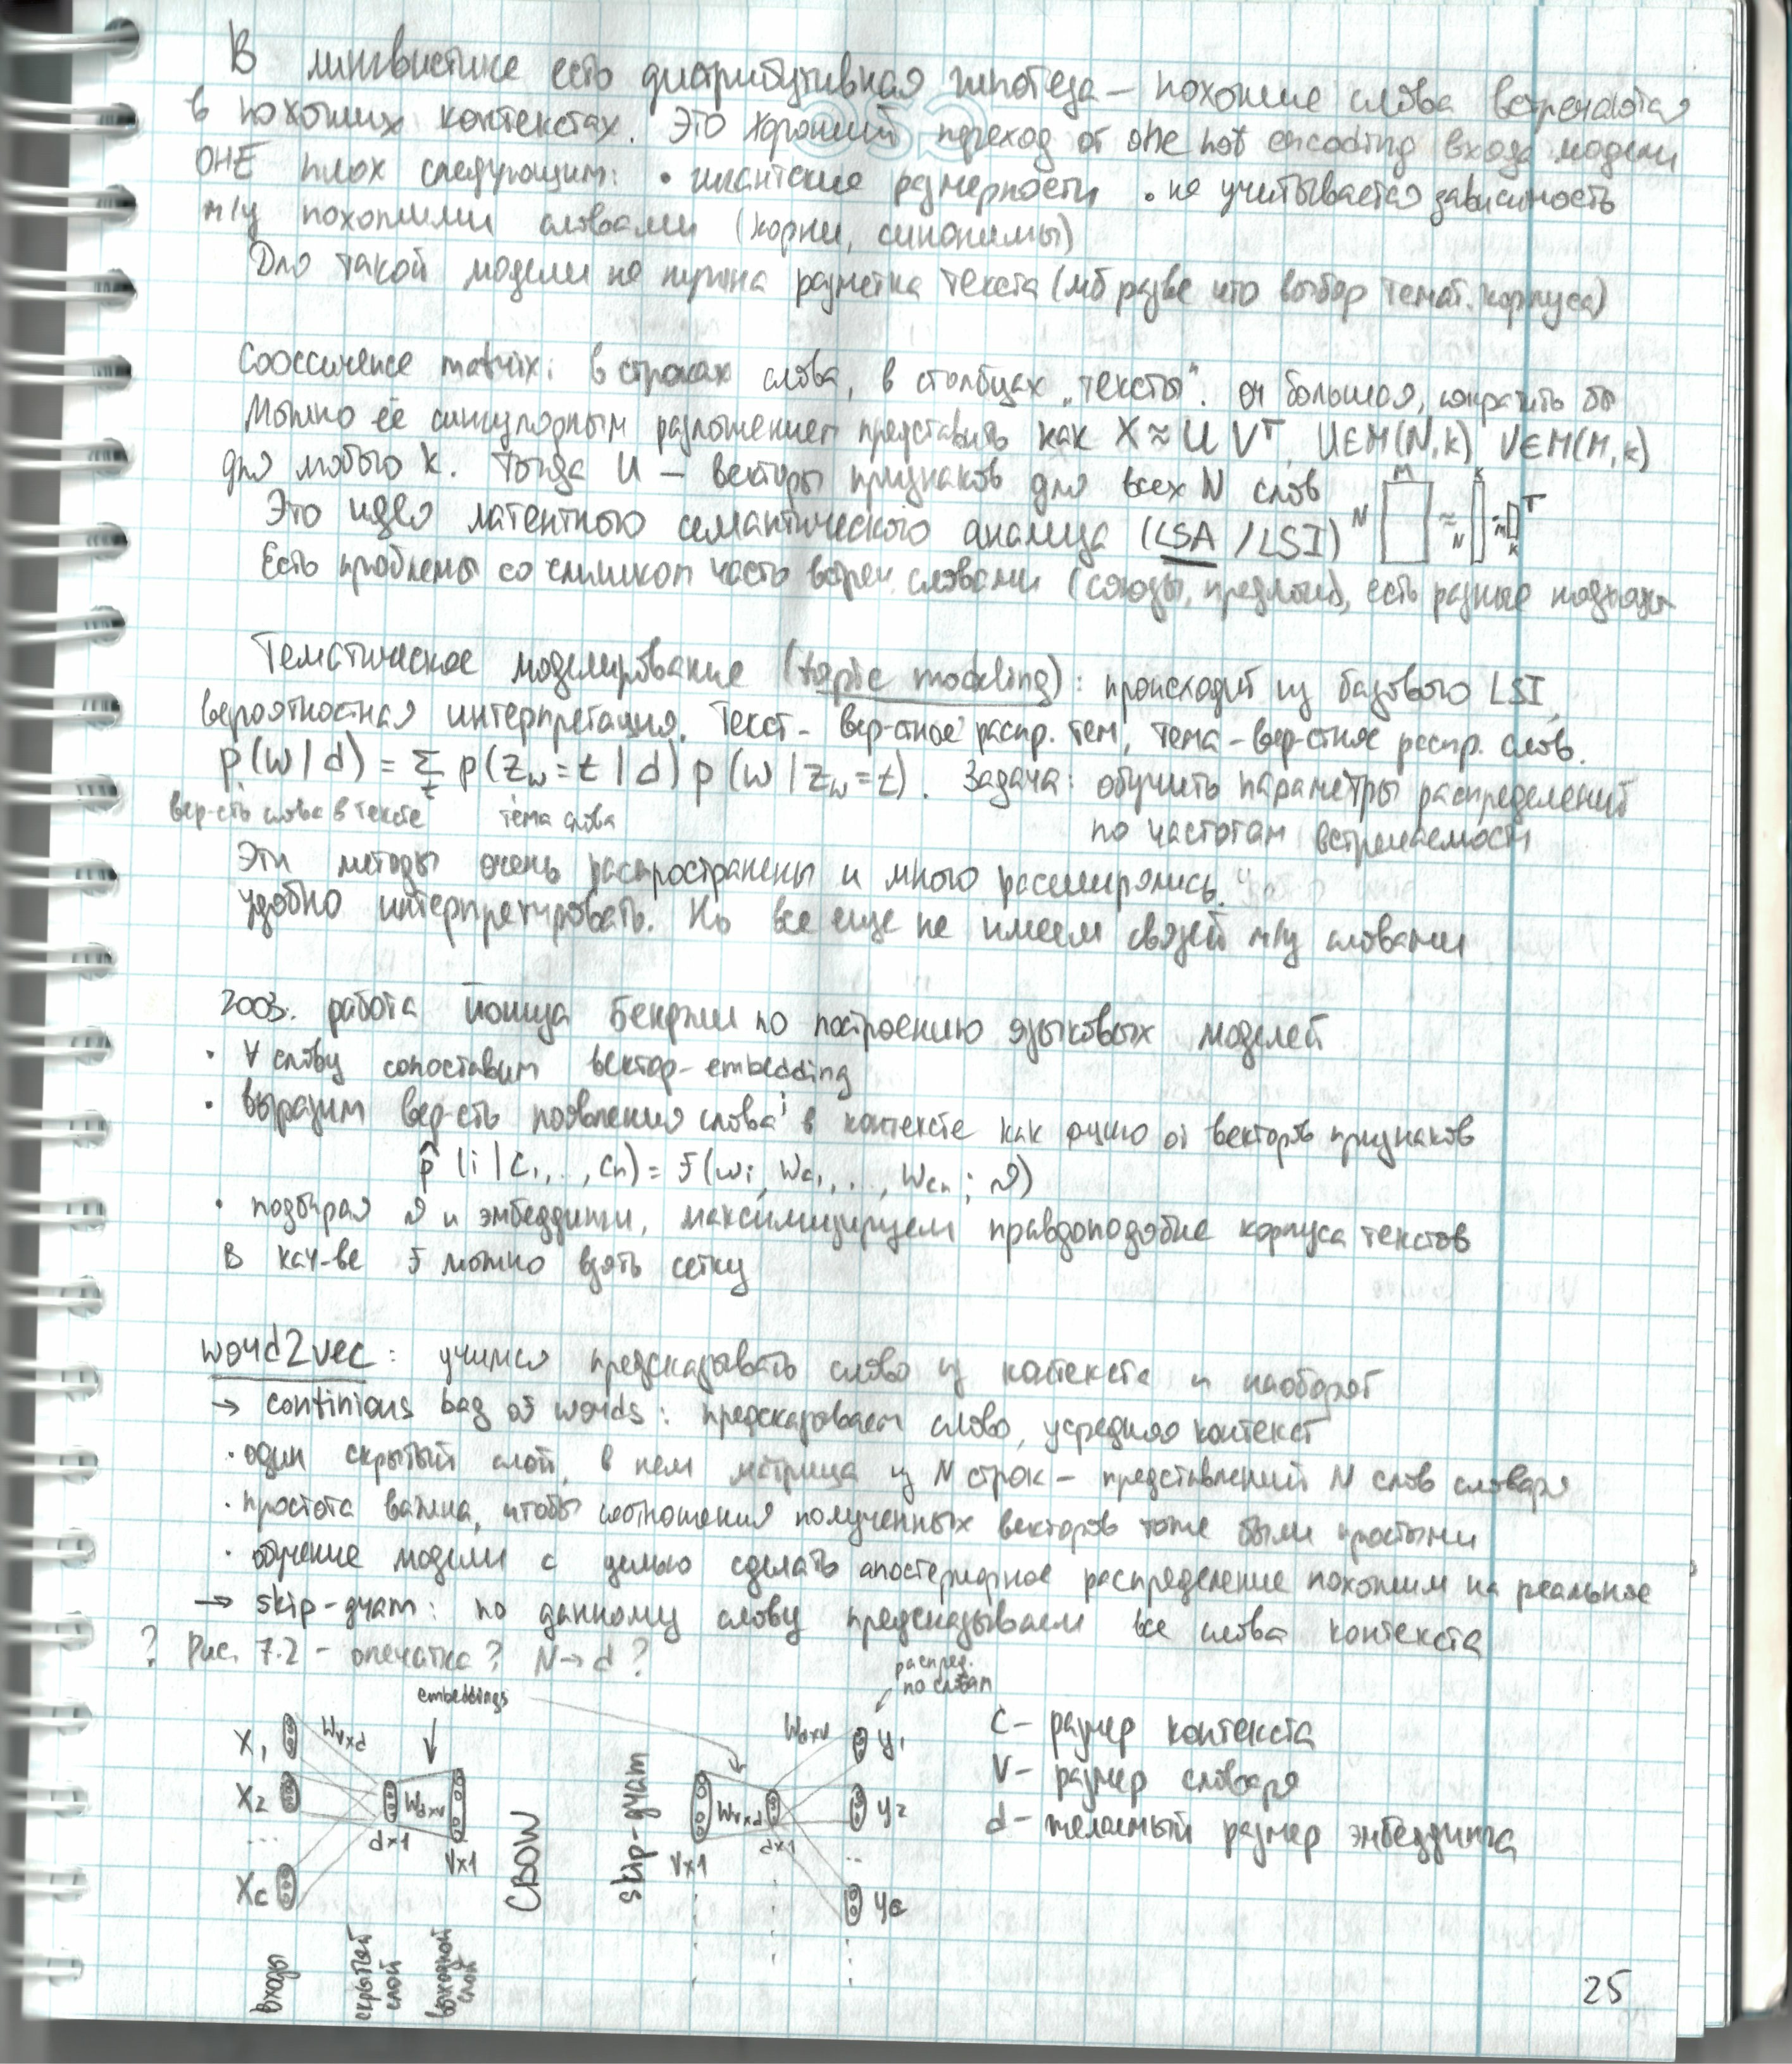 В лингвистике есть дистрибутивная гипотеза – похожие слова встречаются
в похожих контекстах. Это хороший переход от one hot encoding входа модели
OHE плох следующим: • гигантские размерности • не учитывается зависимость
м/у похожими словами (корни, синонимы)
Для такой модели не нужна разметка текста (мб разве что выбор темат. корпуса)
Cooccurence matrix: в строках слова, в столбцах „тексты". оч большая, сократить бы
Можно её сингулярным разложением представить как X ≈ U V^T, U∈M(N,k) V∈M(M,k)
для любого k. Тогда U – векторы признаков для всех N слов
Это идея латентного семантического анализа (LSA / LSI) N M ≈ N k M k T
Есть проблемы со слишком часто встреч. словами (союзы, предлоги), есть разные подходы
Тематическое моделирование (topic modeling): происходит из базового LSI,
вероятностная интерпретация. Текст – вер-стное распр. тем, тема – вер-стное распр. слов.
p(w|d) = Σ_t p(z_w=t|d) p(w|z_w=t). Задача: обучить параметры распределений
вер-сть слова в тексте тема слова по частотам встречаемости
Эти методы очень распространены и много расширялись.
удобно интерпретировать. Но все еще не имеем связей м/у словами
2003. работа Йошуа Бенджи по построению языковых моделей
• ∀ слову сопоставим вектор-embedding
• выразим вер-сть появления слова i в контексте как фцию от векторов признаков
p̂(i|c₁,..,cₙ) = f(w_i, w_c₁,.., w_cₙ; θ)
• подбирая θ и эмбеддинги, максимизируем правдоподобие корпуса текстов
В кач-ве f можно взять сетку
word2vec: учимся предсказывать слово из контекста и наоборот
→ continious bag of words: предсказываем слово, усредняя контекст
• один скрытый слой, в нем матрица из N строк – представлений N слов словаря
• простота важна, чтобы соотношения полученных векторов тоже были простыми
• обучение модели с целью сделать апостериорное распределение похожим на реальное
→ skip-gram: по данному слову предсказываем все слова контекста
? Рис. 7.2 – опечатка? N→d?
embeddings
распред.
по словам
X₁ W_V×d
X₂ W_d×V
...
X_C
d×1
V×1
CBOW
входы
скрытый слой
выходной слой
skip-gram
W_V×d W_d×V
V×1
d×1
y₁
y₂
...
y_C
C – размер контекста
V – размер словаря
d – желаемый размер эмбеддинга
25